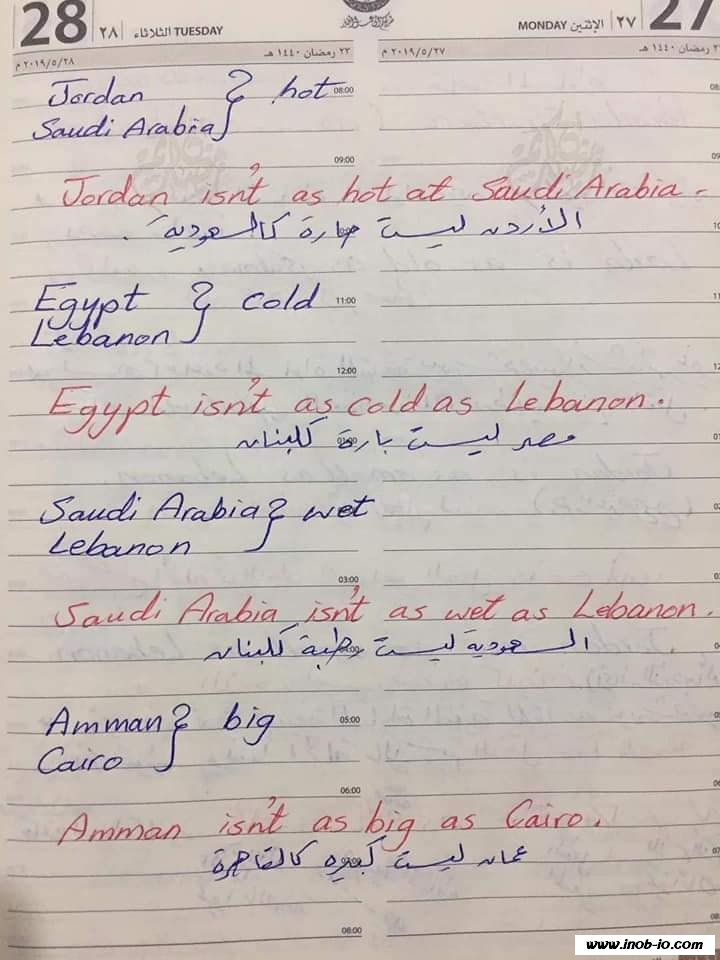 28 ٢٨ الثلاثاء TUESDAY
MONDAY الإثنين ٢٧ 27
٢٠١٩/٥/٢٨ م ٢٣ رمضان ١٤٤٠ هـ
٢٠١٩/٥/٢٧ م رمضان ١٤٤٠ هـ
Jordan } hot 08:00
Saudi Arabia
09:00
Jordan isn't as hot at Saudi Arabia.
الأردن ليست حارة كالسعودية.
Egypt } cold 11:00
Lebanon
12:00
Egypt isn't as cold as Lebanon.
مصر ليست بارة كلبنان
Saudi Arabia } wet
Lebanon
03:00
Saudi Arabia isn't as wet as Lebanon.
السعودية ليست رطبة كلبنان
Amman } big 05:00
Cairo
06:00
Amman isn't as big as Cairo.
عمان ليست كبيره كالقاهرة
08:00
www.inob-io.com